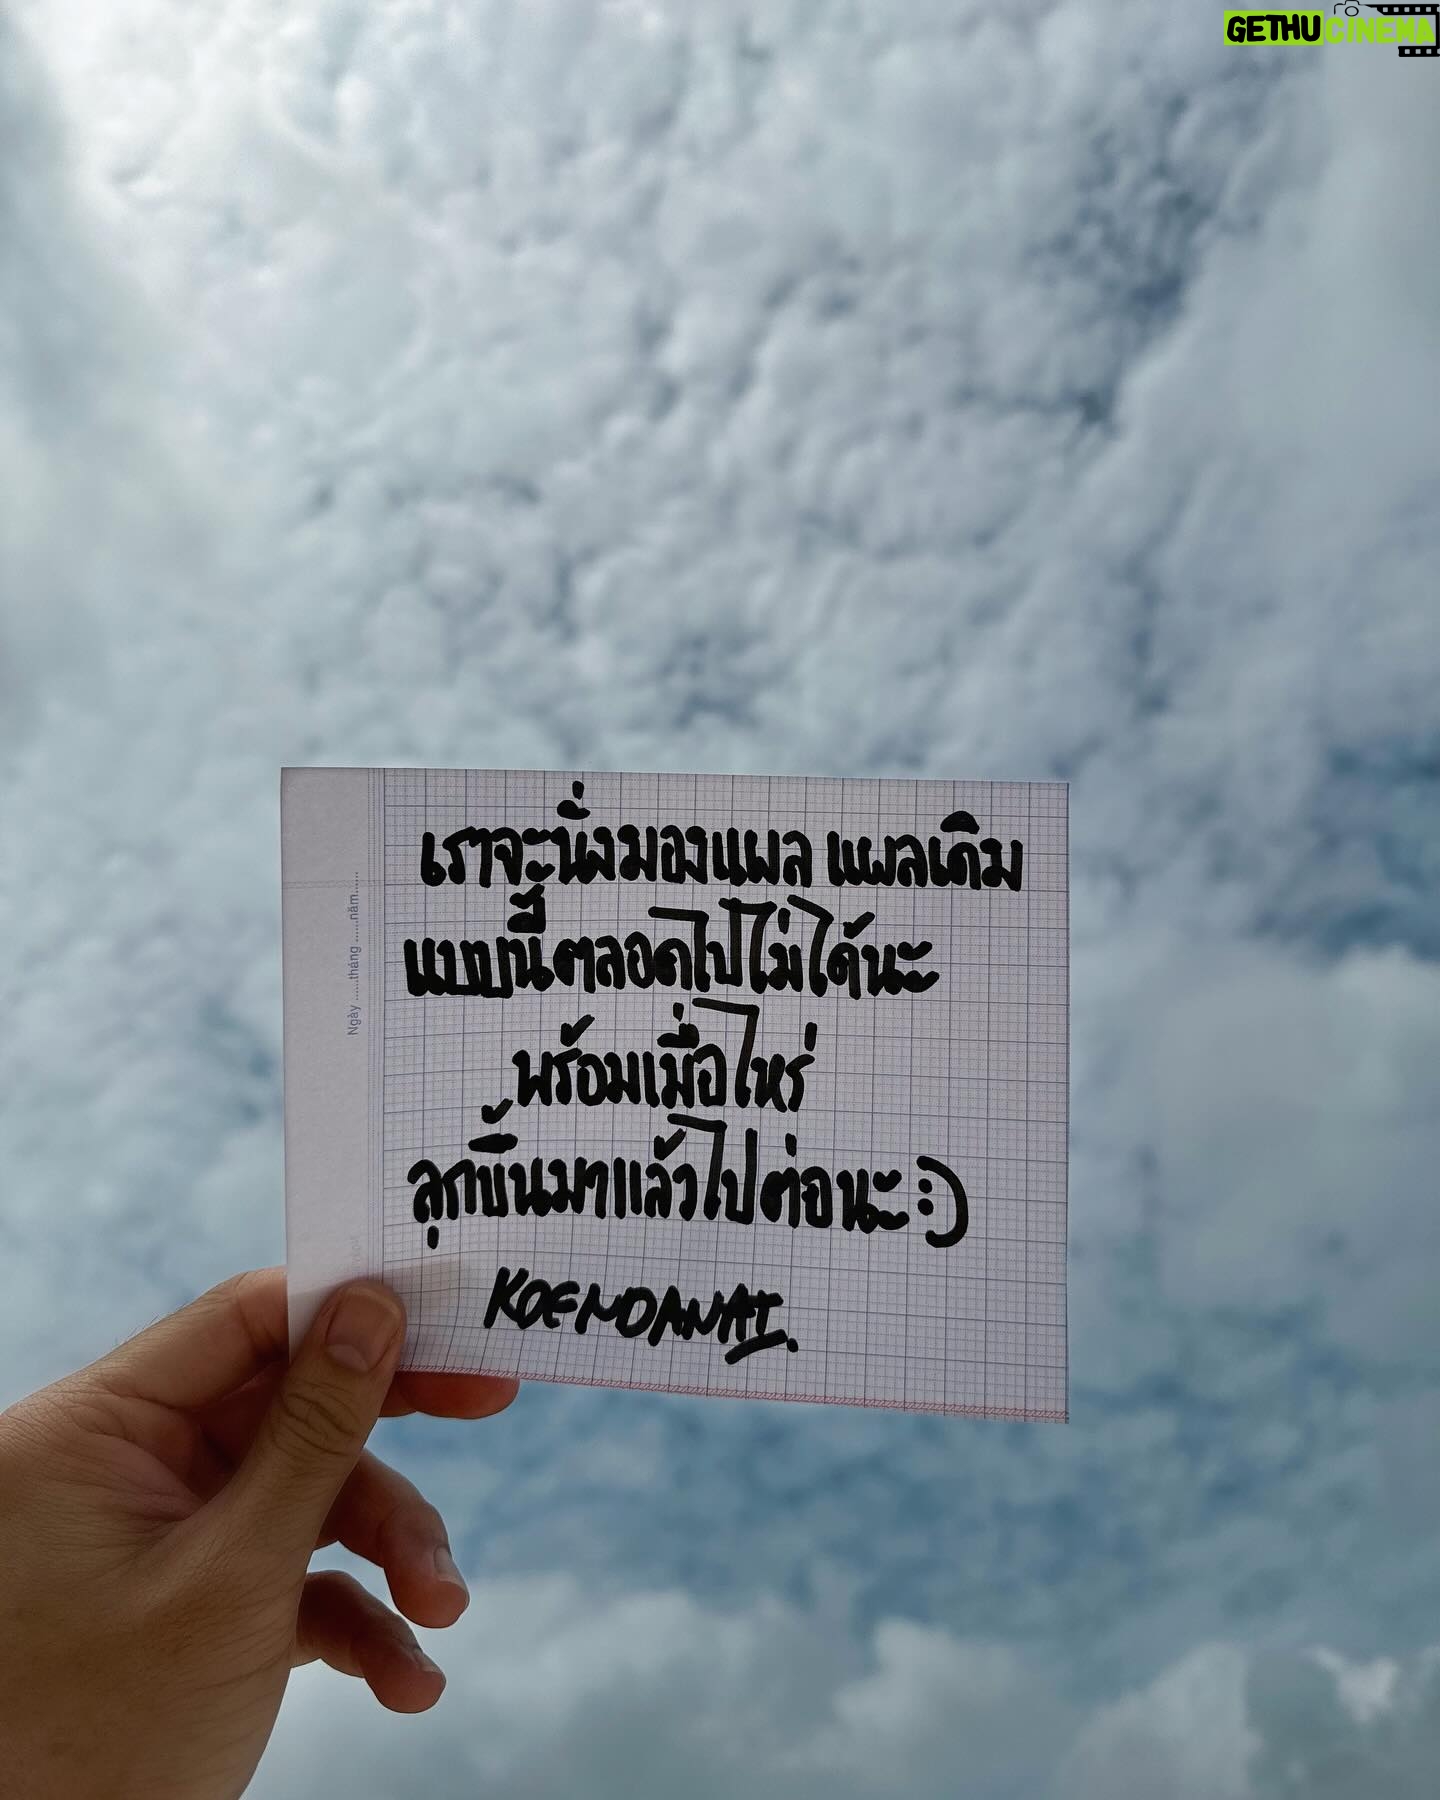 GETHUCINEMA
เราจะนั่งมองแผล แผลเดิม
แบบนี้ตลอดไปไม่ได้นะ
พร้อมเมื่อไหร่
ลุกขึ้นมาแล้วไปต่อนะ :)
KOENDANAI.
Ngày ......tháng ......năm.......